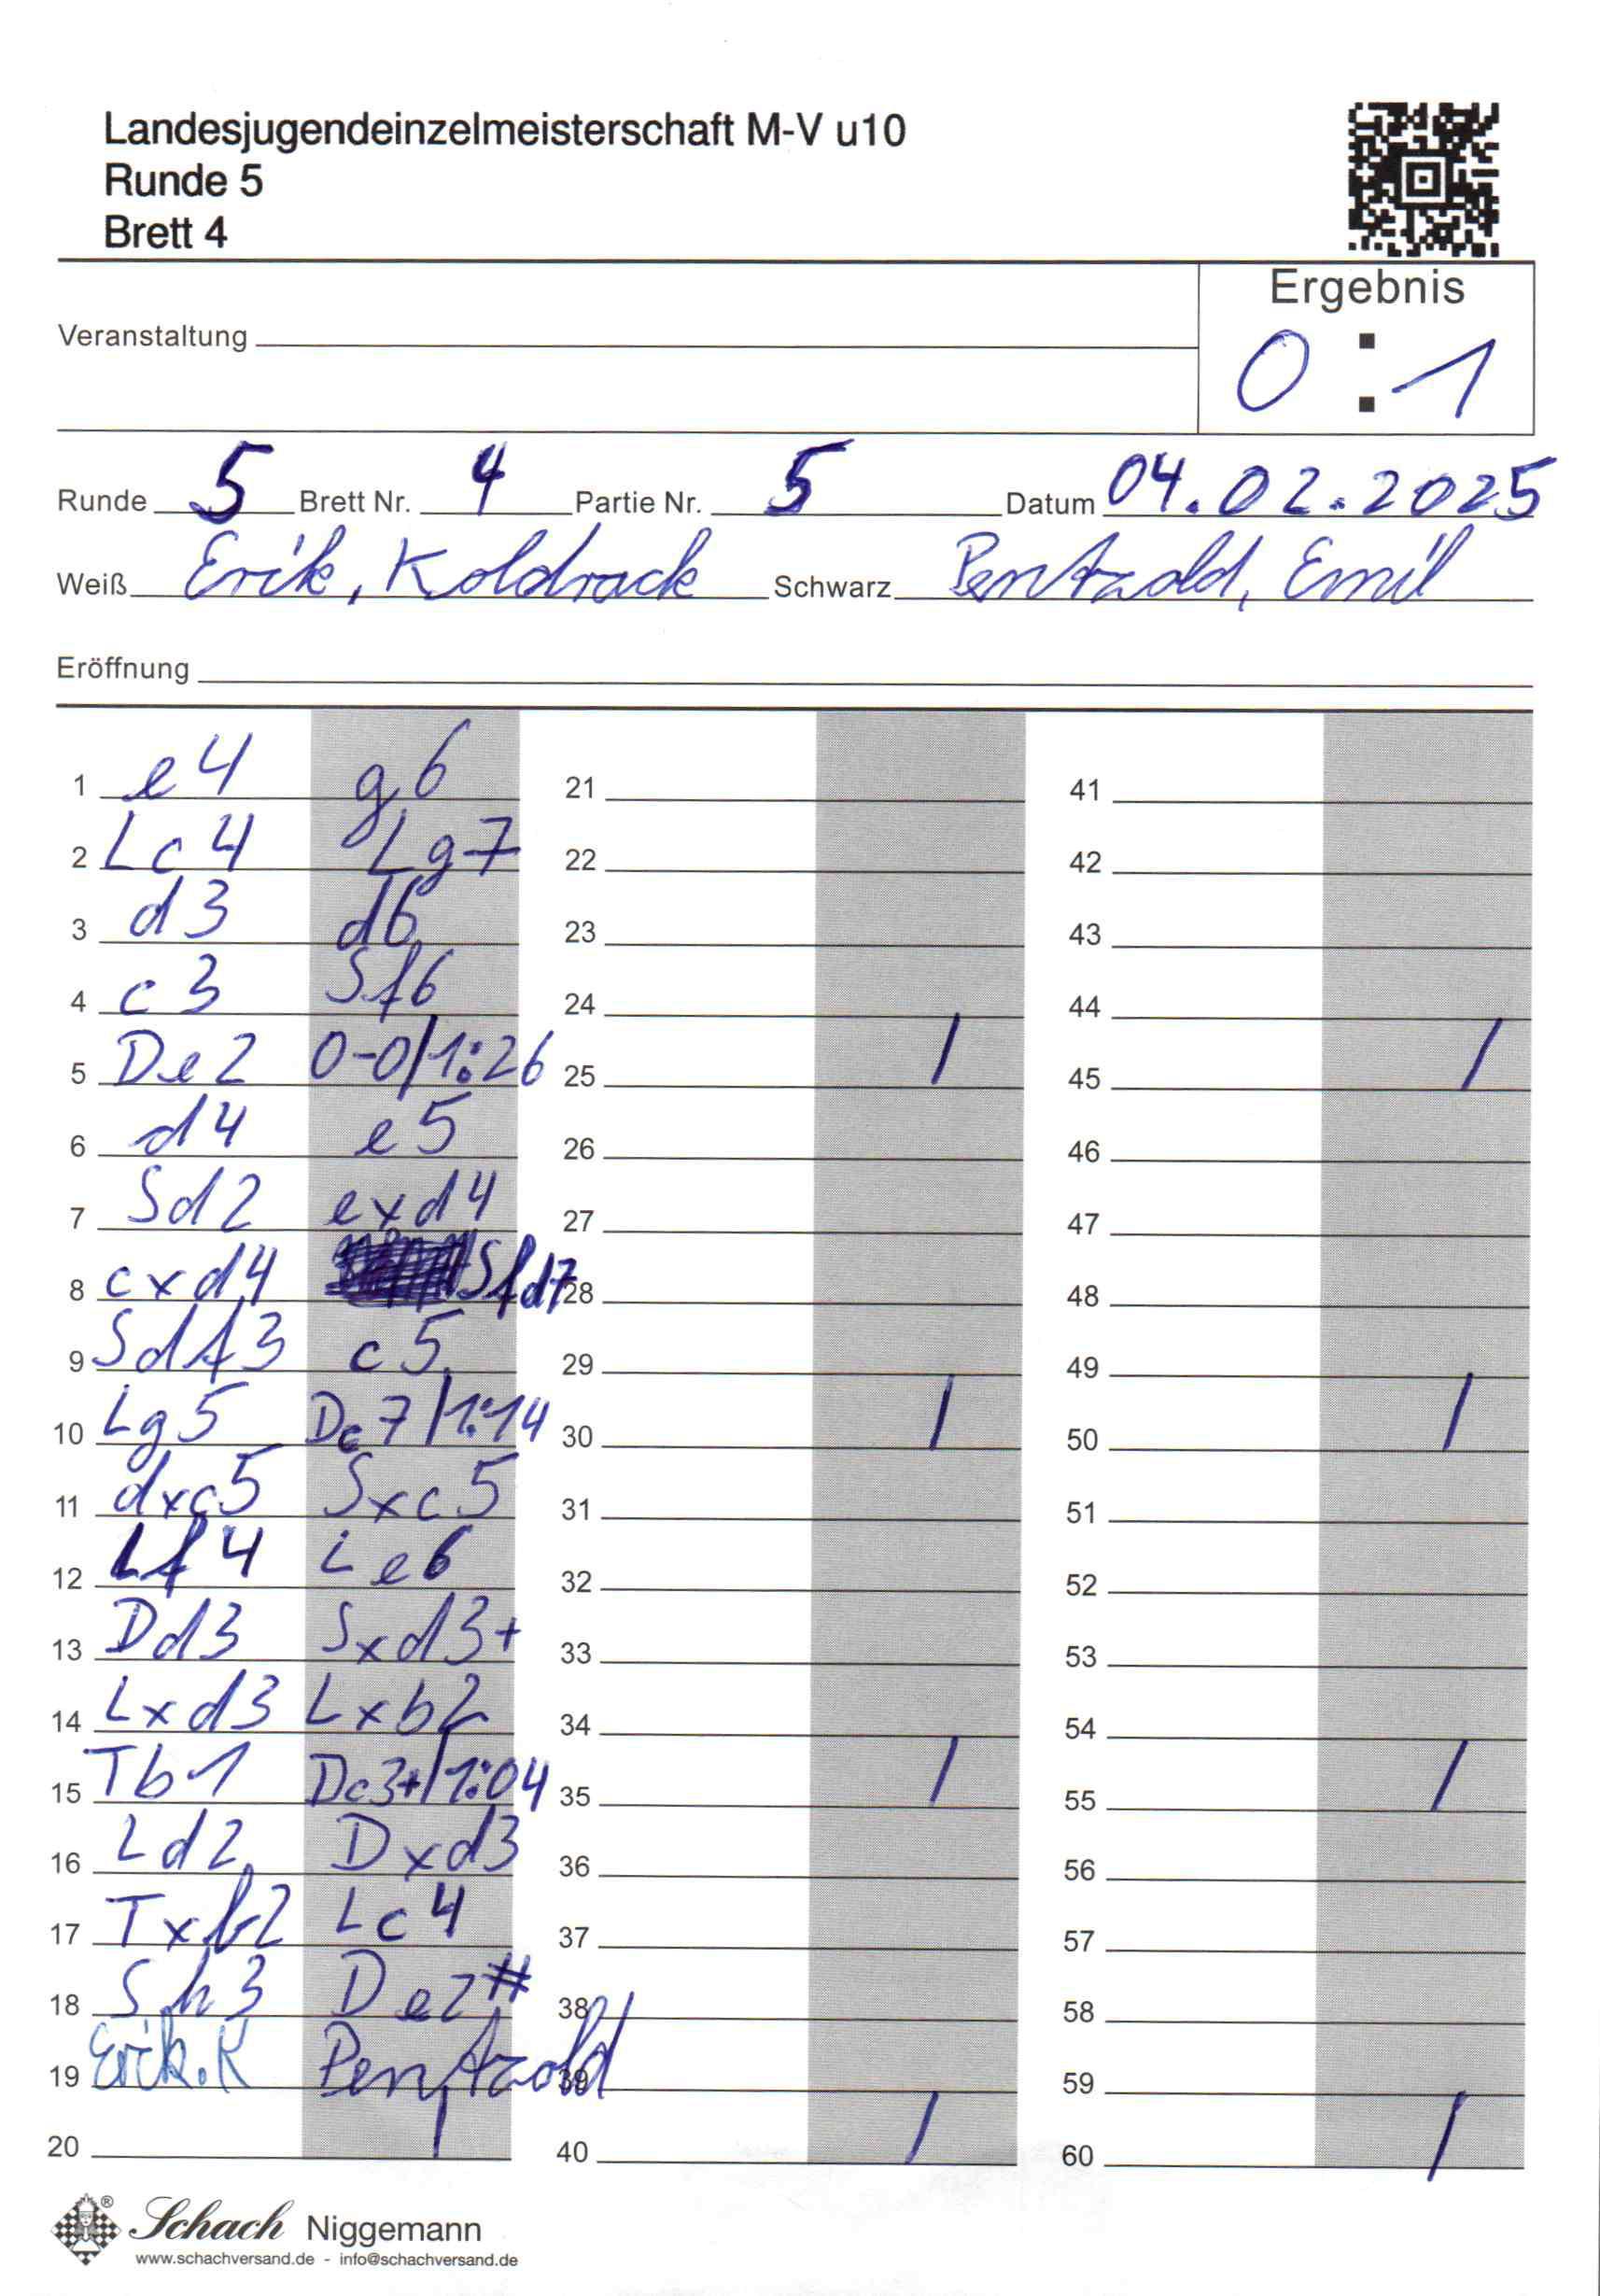 Landesjugendeinzelmeisterschaft M-V u10
Runde 5
Brett 4
Ergebnis
Veranstaltung
0 : 1
Runde 5 Brett Nr. 4 Partie Nr. 5 Datum 04.02.2025
Weiß Erik, Koldrack Schwarz Pentzold, Emil
Eröffnung
1 e4 g6 21 41
2 Lc4 Lg7 22 42
3 d3 d6 23 43
4 c3 Sf6 24 44
5 De2 0-0/1:26 25 / 45 /
6 d4 e5 26 46
7 Sd2 exd4 27 47
8 cxd4 Sfd7 28 48
9 Sdf3 c5 29 49
10 Lg5 Dc7/1:14 30 / 50 /
11 dxc5 Sxc5 31 51
12 Lf4 Le6 32 52
13 Dd3 Sxd3+ 33 53
14 Lxd3 Lxb2 34 54
15 Tb1 Dc3+/1:04 35 / 55 /
16 Ld2 Dxd3 36 56
17 Txb2 Lc4 37 57
18 Sh3 De2# 38 58
19 Erik.K Pentzold 39 59
20 / 40 / 60 /
® Schach Niggemann
www.schachversand.de - info@schachversand.de